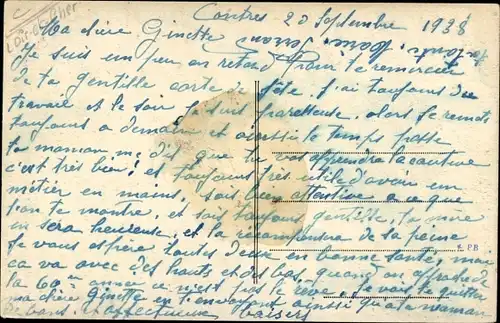 Loir-et-Cher
Contres 20 Septembre 1938
Ma chère Ginette
Je suis un peu en retard pour te remercier
de ta gentille carte de fête. j'ai toujours du
travail et le soir je suis paresseuse. alors je remets
toujours a demain et aussi le temps passe
ta maman m'dit que tu vas apprendre la couture
c'est très bien! et toujours très utile d'avoir un
métier en mains, sois bien attentive a ce que
l'on te montre, et sois toujours gentille, ta mère
en sera heureuse, et la récompensera de sa peine
Je vous espère toutes deux en bonne santé, moi
ça va avec des hauts et des bas, quand on approche de
la 60e année ce n'est pas le rêve. Je vais te quitter
ma chère Ginette en t'envoyant ainsi qu'a ta maman
de bons et affectueux baisers
E. PB